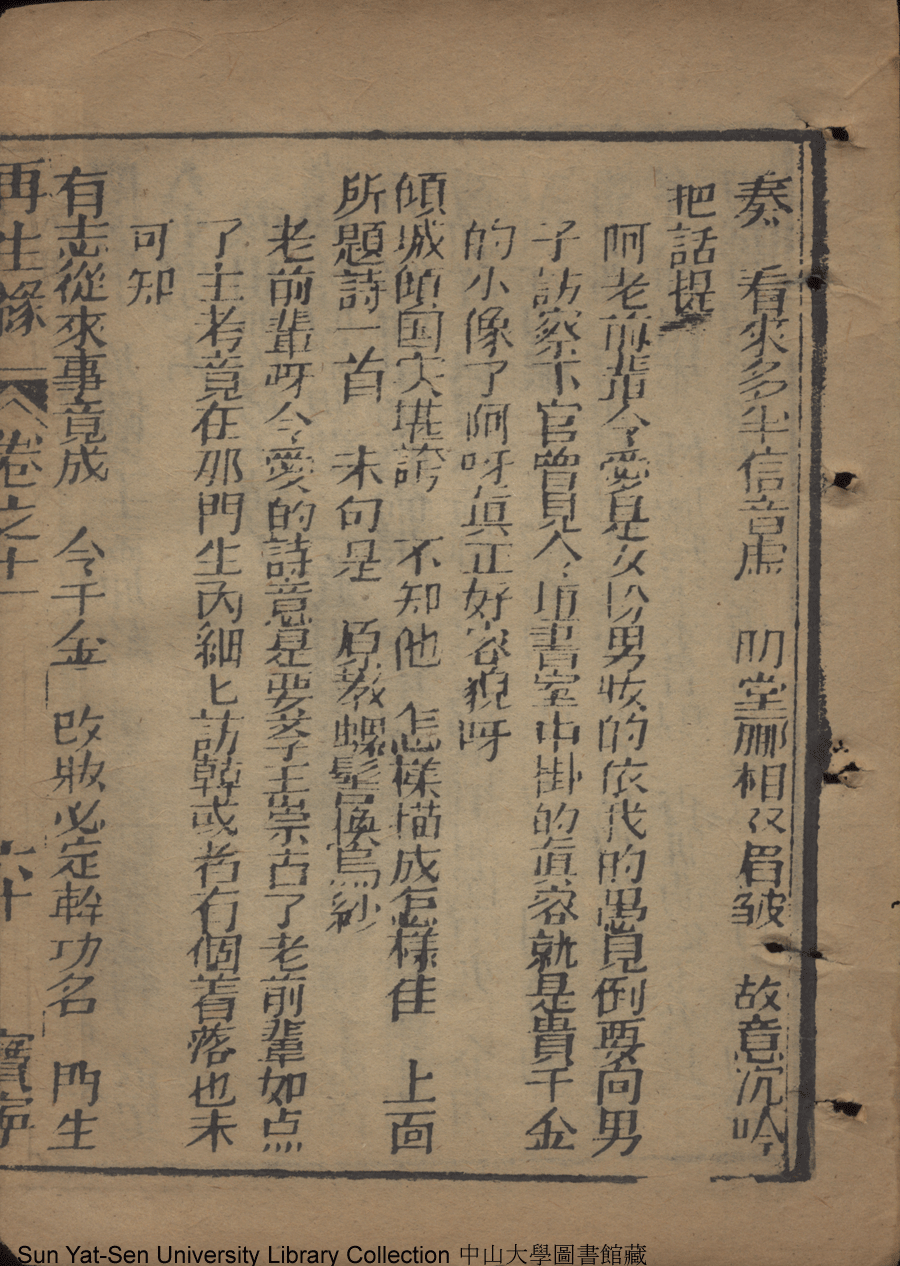 奏　看來多半信音虛　明堂酈相双眉皺　故意沉吟
把話提
阿老前輩令愛是女扮男妝的依我的愚見倒要向男
子訪察下官曾見令坦書室中掛的真容就是貴千金
的小像了阿呀真正好容貌呀
傾城傾国实堪誇　不知他　怎樣描成怎樣佳　上面
所題詩一首　末句是　原教螺髻換烏紗
老前輩呀令愛的詩意是要孝主崇古了老前輩如点
了主考竟在那門生內細匕訪幹或者有個着落也未
可知
有志從來事竟成　令千金　改妝必定幹功名　門生
再生緣　卷之十一　六十　寶寧
Sun Yat-Sen University Library Collection 中山大學圖書館藏